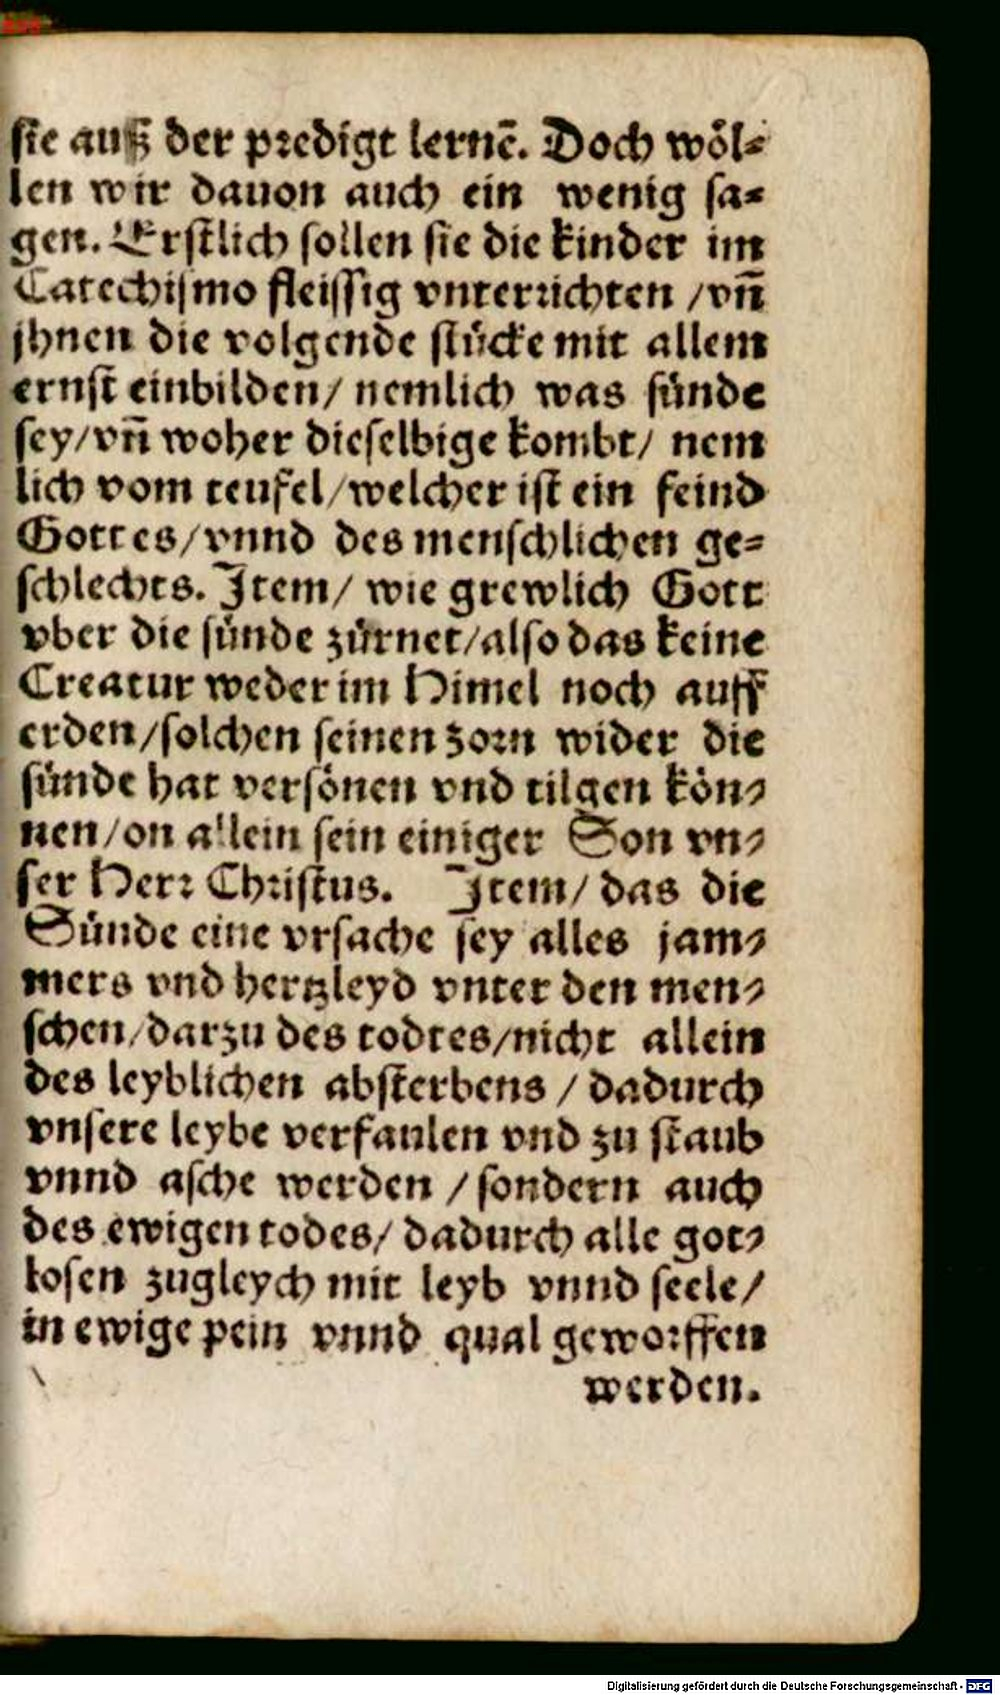 sie auß der predigt lernē. Doch wöl⸗
len wir dauon auch ein wenig sa⸗
gen. Erstlich sollen sie die kinder im
Catechismo fleissig vnterrichten /vñ
jhnen die volgende stücke mit allem
ernst einbilden/ nemlich was sünde
sey/vñ woher dieselbige kombt/ nem
lich vom teufel/welcher ist ein feind
Gottes/vnnd des menschlichen ge⸗
schlechts. Item/ wie grewlich Gott
vber die sünde zürnet/also das keine
Creatur weder im Himel noch auff
erden/solchen seinen zorn wider die
sünde hat versönen vnd tilgen kön⸗
nen/on allein sein einiger Son vn⸗
ser Herr Christus. Item/ das die
Sünde eine vrsache sey alles jam⸗
mers vnd hertzleyd vnter den men⸗
schen/darzu des todtes/nicht allein
des leyblichen absterbens / dadurch
vnsere leybe verfaulen vnd zu staub
vnnd asche werden / sondern auch
des ewigen todes/ dadurch alle got⸗
losen zugleych mit leyb vnnd seele/
in ewige pein vnnd qual geworffen
werden.
Digitalisierung gefördert durch die Deutsche Forschungsgemeinschaft - DFG